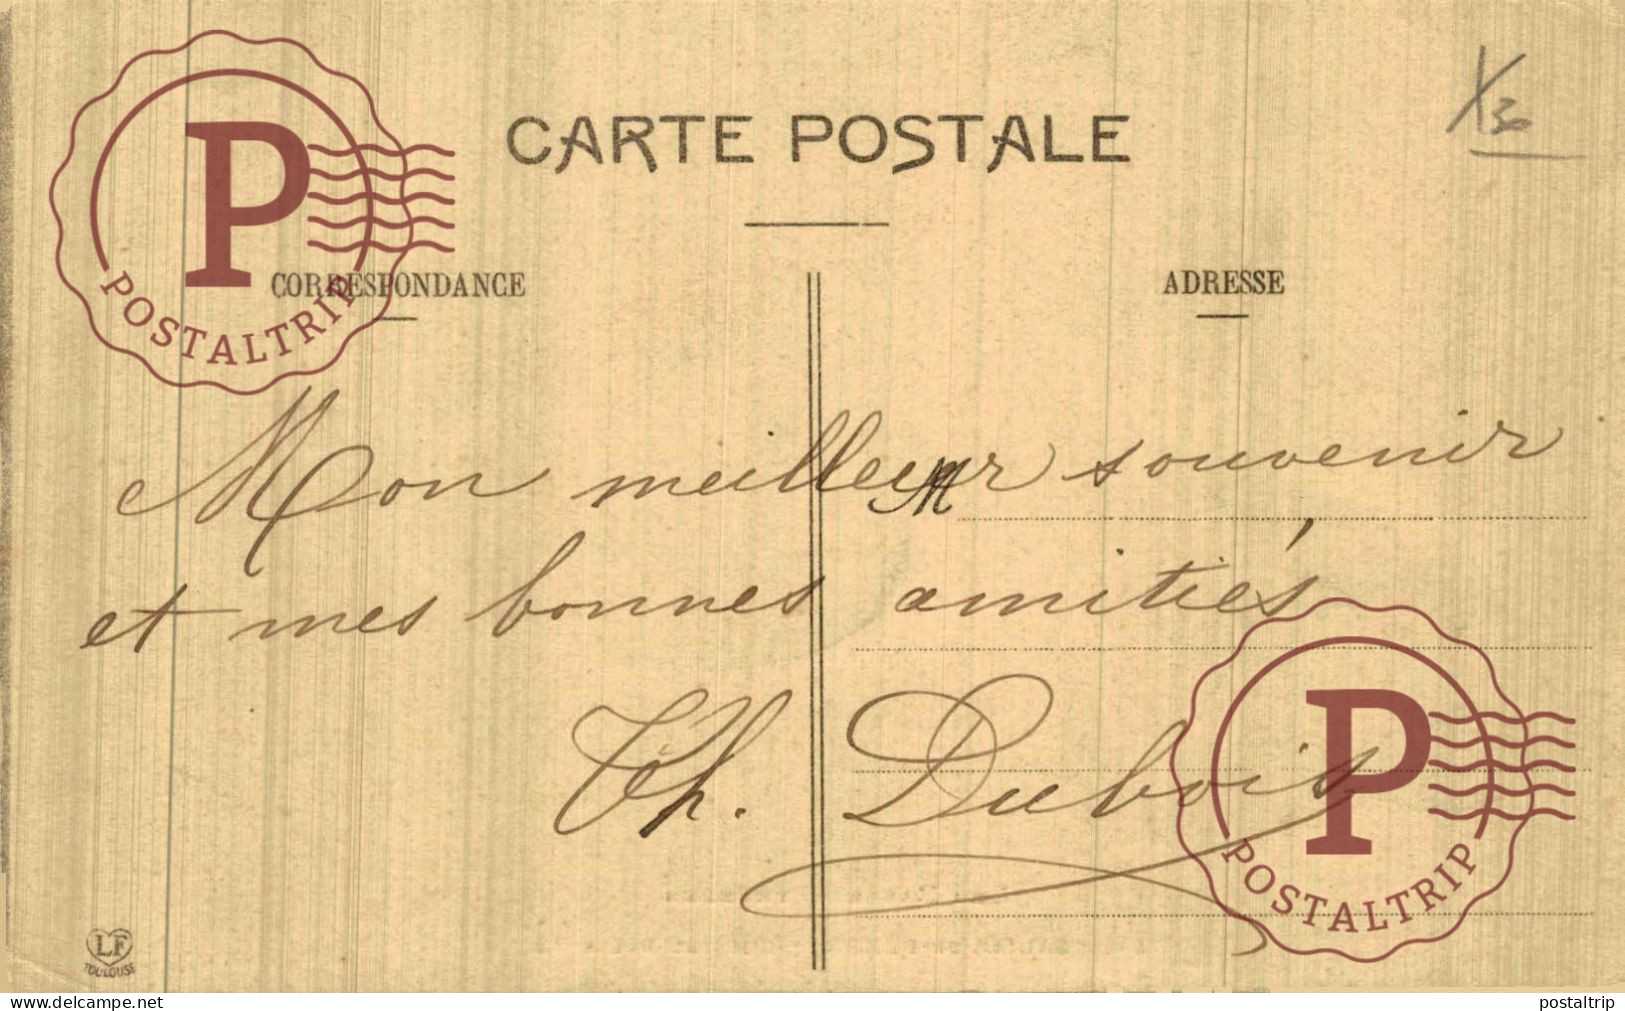 CARTE POSTALE
X30
CORRESPONDANCE
ADRESSE
Mon meilleur souvenir
M
et mes bonnes amitiés
Th. Dubois
LF
TOULOUSE
P
POSTALTRIP
P
POSTALTRIP
www.delcampe.net
postaltrip